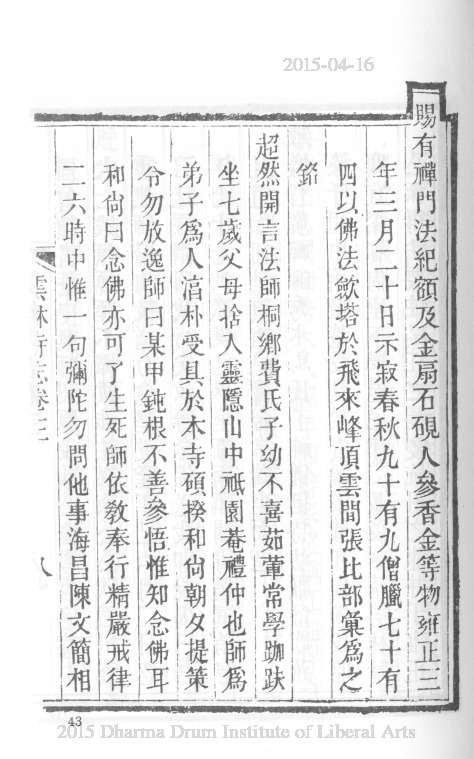 2015-04-16
賜有禪門法紀額及金扇石硯人參香金等物雍正三
年三月二十日示寂春秋九十有九僧臘七十有
四以佛法歛塔於飛來峰頂雲間張比部彙爲之
銘
超然開言法師桐鄉費氏子幼不喜茹葷常學跏趺
坐七歲父母捨入靈隱山中祇園菴禮仲也師爲
弟子爲人湻朴受具於本寺碩揆和尙朝夕提策
令勿放逸師曰某甲鈍根不善參悟惟知念佛耳
和尙曰念佛亦可了生死師依敎奉行精嚴戒律
二六時中惟一句彌陀勿問他事海昌陳文簡相
雲林寺志卷三
八
43
2015 Dharma Drum Institute of Liberal Arts